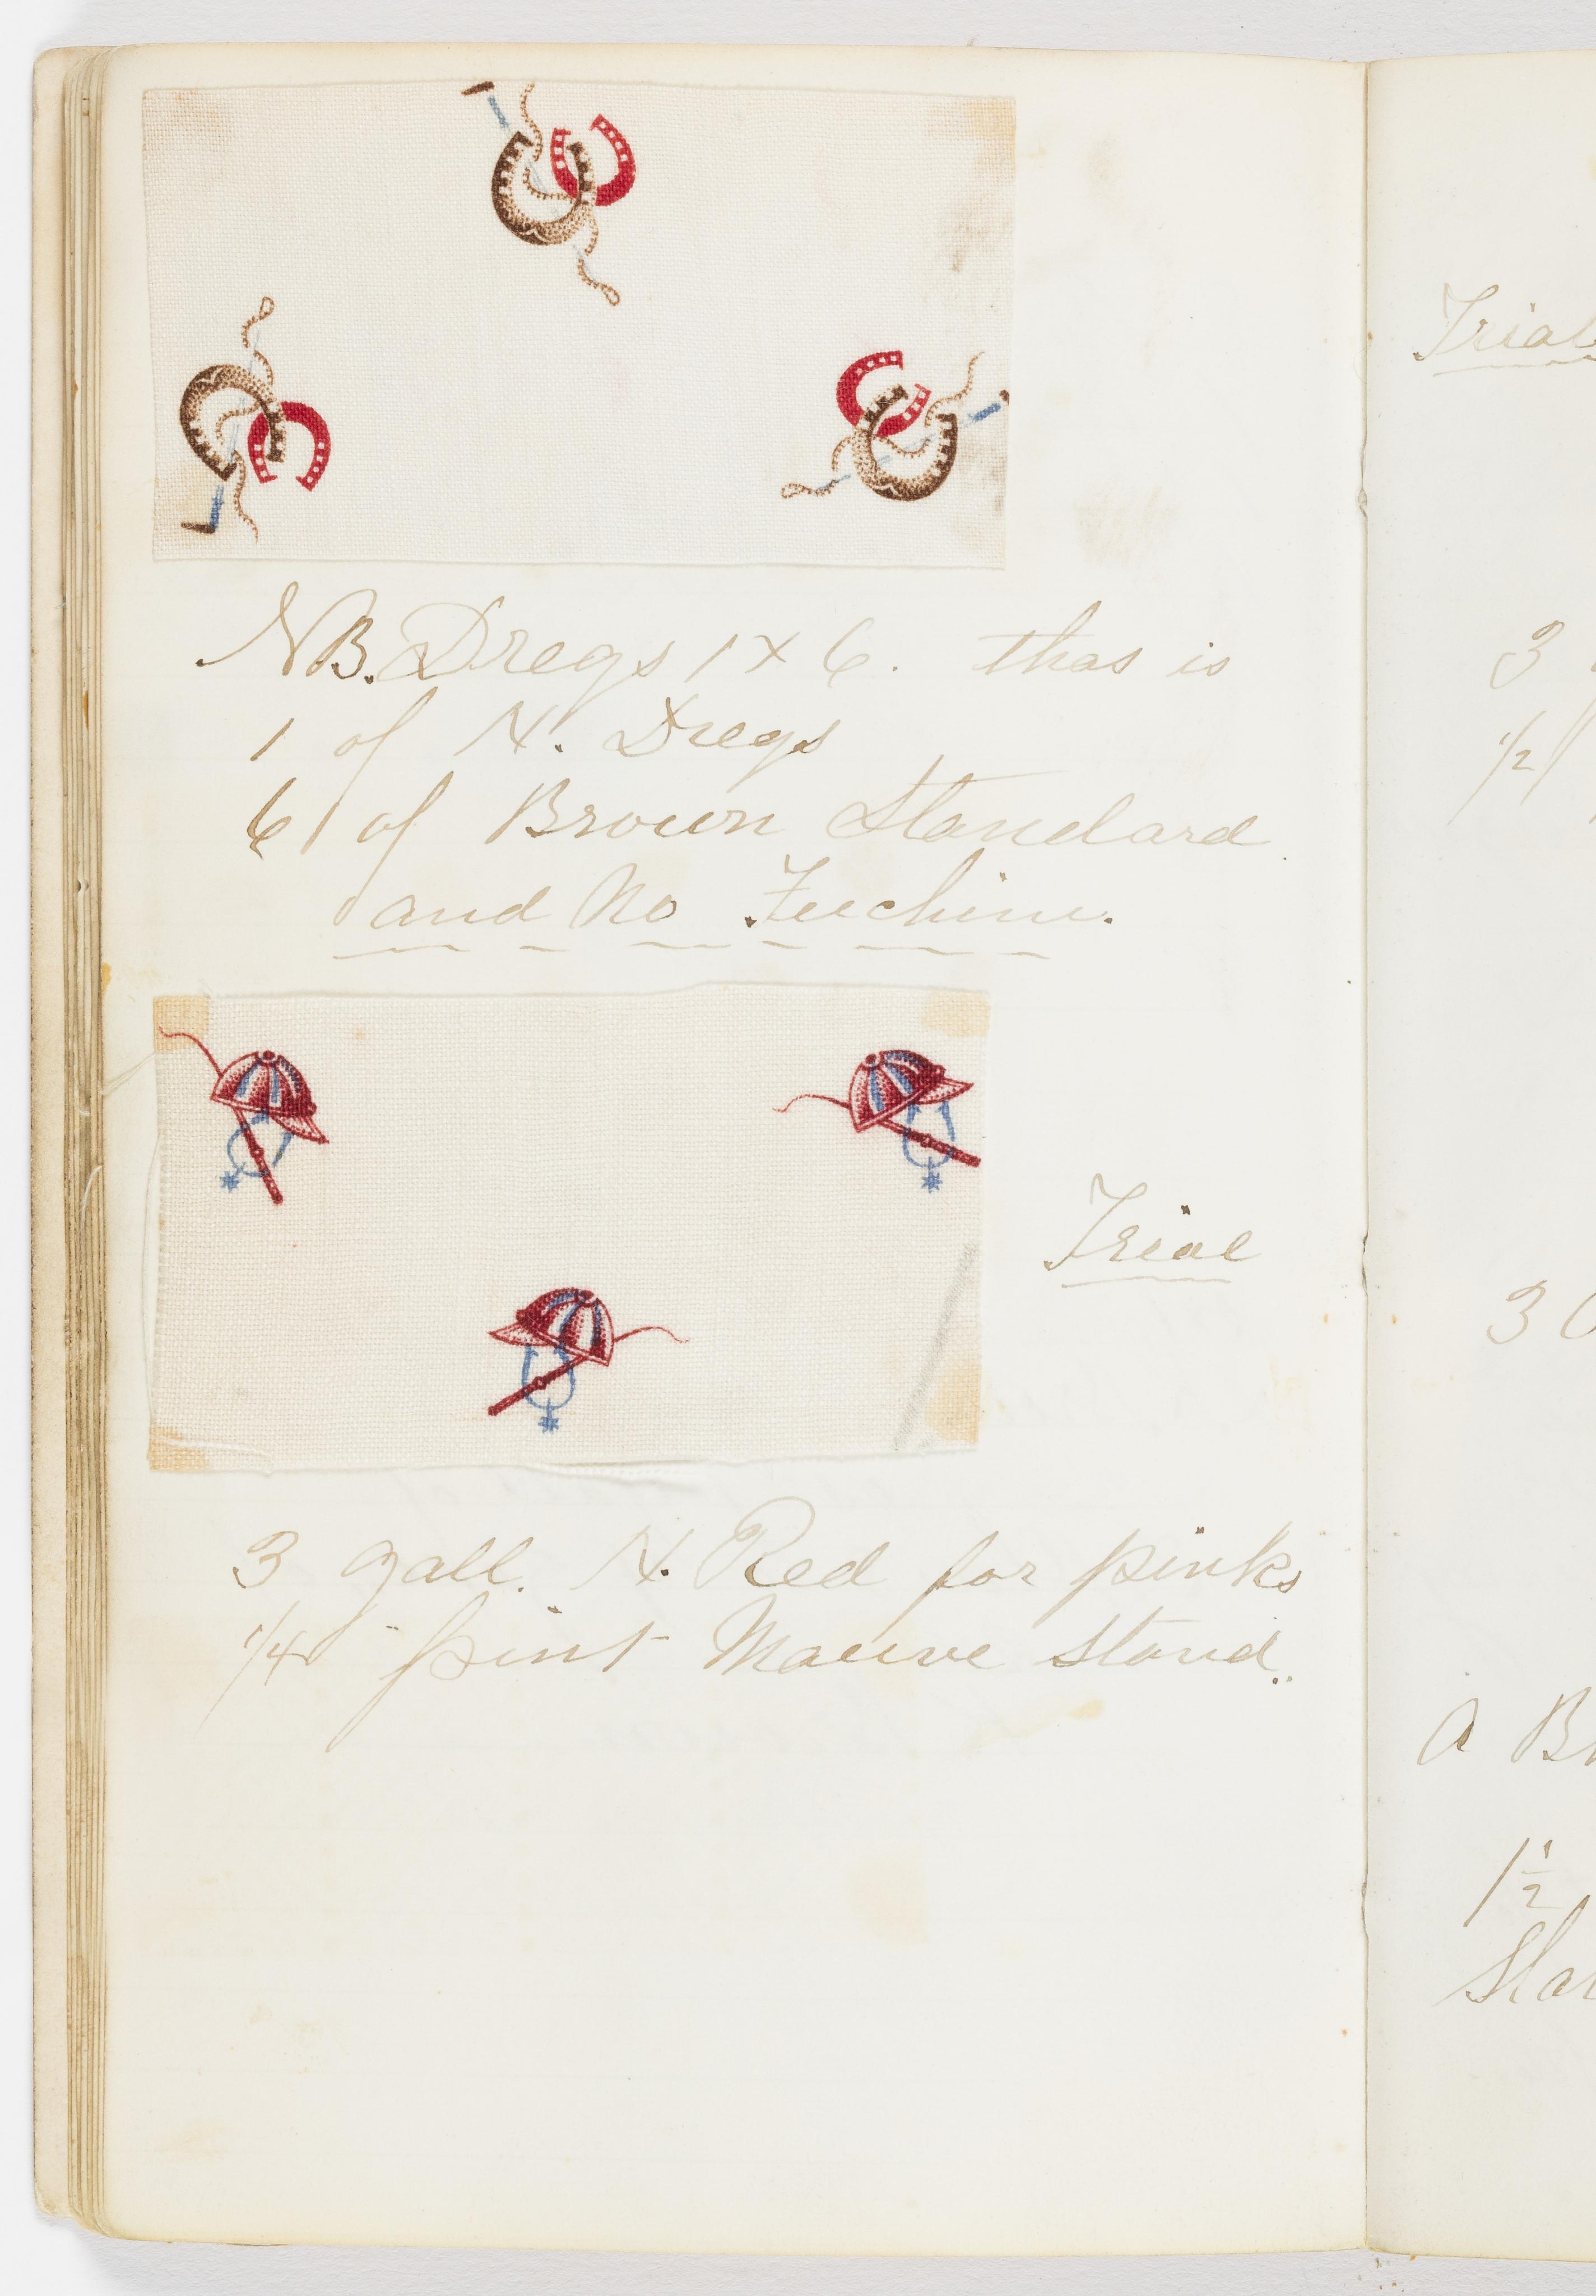 NB. Dregs 1 x 6. thas is
1 of N. Dregs
6 of Brown Standard
and No Fuchine.
Trial
3 gall. N. Red for pinks
1/4 - pint Mauve Stand.
Trial
3
1/2
3
A
1 1/2